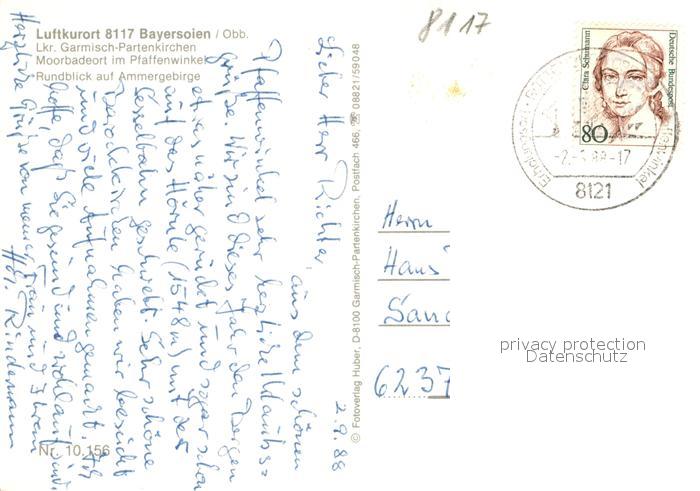 8117
Luftkurort 8117 Bayersoien / Obb.
Lkr. Garmisch-Partenkirchen
Moorbadeort im Pfaffenwinkel
Rundblick auf Ammergebirge
Nr. 10.156
© Fotoverlag Huber, D-8100 Garmisch-Partenkirchen, Postfach 466, ☏ 08821/59048
2.9.88
Lieber Herr Richter,
aus dem schönen
Pfaffenwinkel sehr herzliche Urlaubs-
grüße. Wir sind dieses Jahr den Bergen
etwas näher gerückt und sogar schon
auf das Hörnle (1548 m) mit der
Sesselbahn geschwebt. Sehr schöne
Barockkirchen haben wir besucht
und viele Aufnahmen gemacht. Ich
hoffe, daß Sie gesund und wohlauf sind.
Herzliche Grüße von meiner Frau und Ihrem
Rindermann
Deutsche Bundespost
Clara Schumann
80
-2.-9.88-17
8121
Herrn
Hans
Sand
6237
privacy protection
Datenschutz